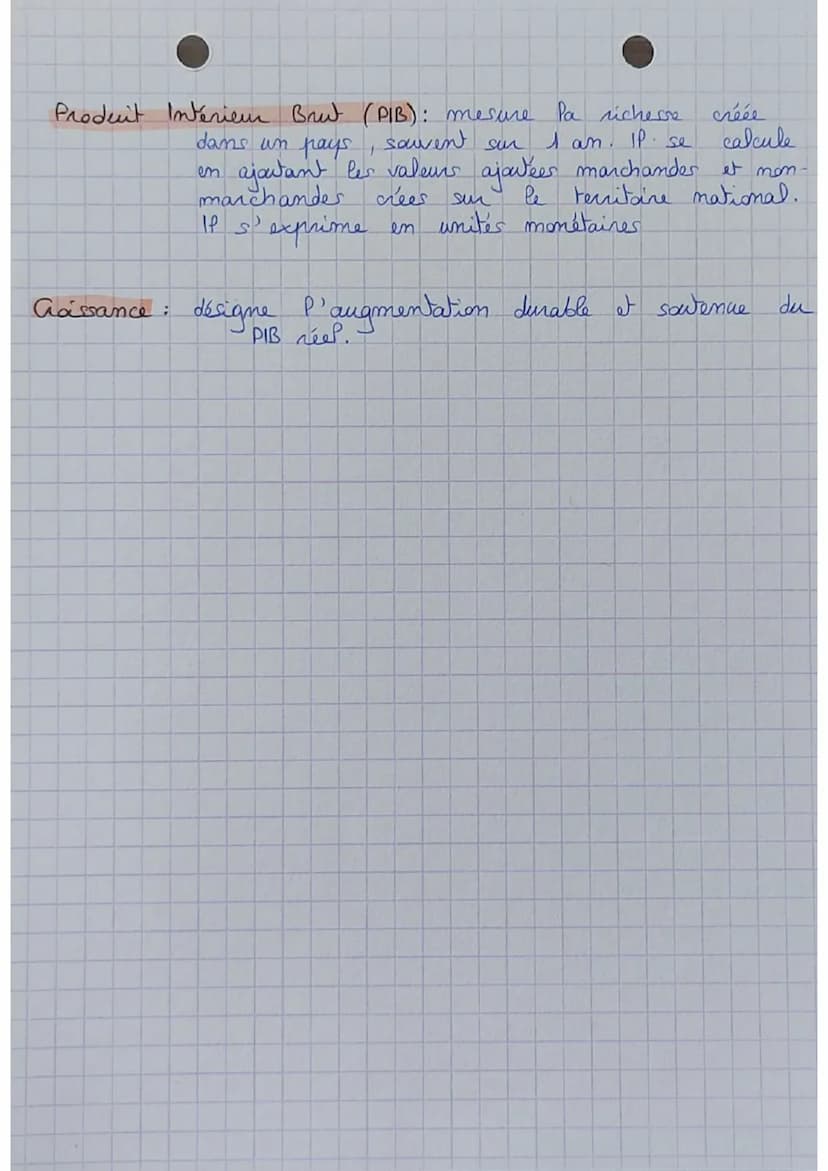 Produit Intérieur Brut (PIB) : mesure la richesse créée
dans un pays, souvent sur 1 an. Il se calcule
en ajoutant les valeurs ajoutées marchandes et non-
marchandes crées sur le territoire national.
Il s'exprime en unités monétaires
Croissance : désigne l'augmentation durable et soutenue du
PIB réel.